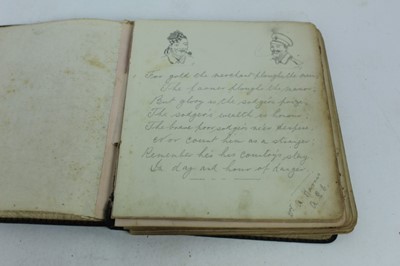 For gold the merchant ploughs the main,
The farmer ploughs the manor,
But glory is the sodger's prize
The sodger's wealth is honor.
The brave poor sodger ne'er despise
or count him as a stranger,
Remember he's his country's stay
In day and hour of danger.